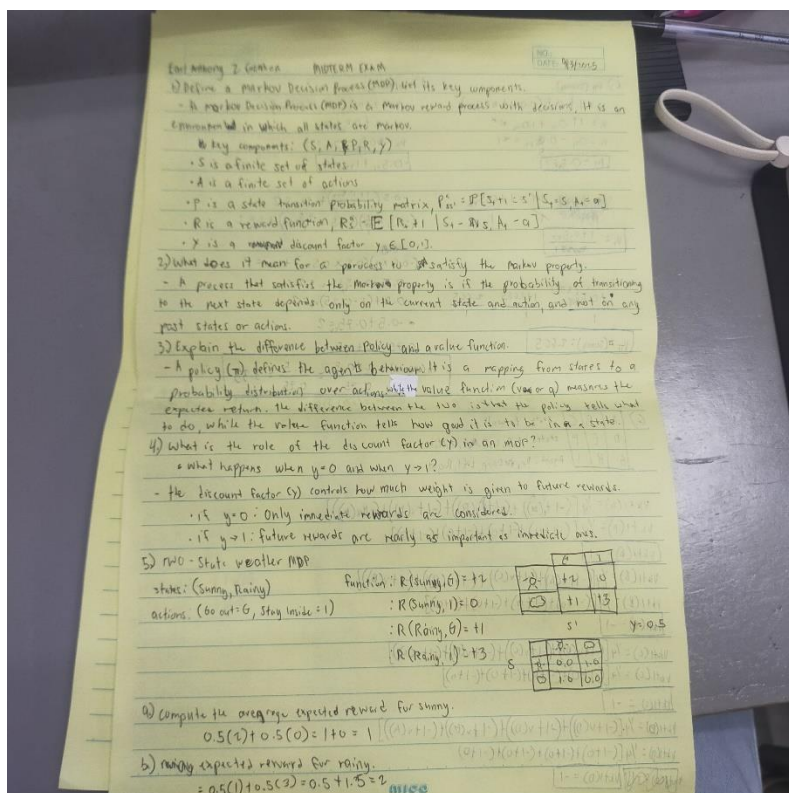 Earl Anthony Z. MIDTERM EXAM
NO.:
DATE: 9/3/2025
1) Define a Markov Decision Process (MDP). List its key components.
- A Markov Decision Process (MDP) is a Markov reward process with decisions. It is an
environment in which all states are markov.
key components: (S, A, P, R, γ)
• S is a finite set of states
• A is a finite set of actions
• P is a state transition probability matrix, P^a_ss' = P[S_t+1 = s' | S_t = s, A_t = a]
• R is a reward function, R^a_s = E[R_t+1 | S_t = s, A_t = a]
• γ is a discount factor γ ∈ [0,1].
2) What does it mean for a process to satisfy the Markov property.
- A process that satisfies the Markov property is if the probability of transitioning
to the next state depends only on the current state and action, and not on any
past states or actions.
3) Explain the difference between Policy and a value function.
- A policy (π) defines the agents behaviour. It is a mapping from states to a
probability distribution over actions while the value function (v or q) measures the
expected return. The difference between the two is that the policy tells what
to do, while the value function tells how good it is to be in a state.
4) What is the role of the discount factor (γ) in an MDP?
• What happens when γ=0 and when γ→1?
- the discount factor (γ) controls how much weight is given to future rewards.
• if γ=0: Only immediate rewards are considered.
• if γ→1: future rewards are nearly as important as immediate ones.
5) Two-State weather MDP
states: (Sunny, Rainy) function: R(Sunny, G) = +2
actions: (Go out = G, Stay Inside = 1) : R(Sunny, 1) = 0
: R(Rainy, G) = +1
: R(Rainy, 1) = +3
+2 0
+1 +3
S' γ=0.5
S
0.0 1.0
1.0 0.0
a) compute the average expected reward for sunny.
0.5(2) + 0.5(0) = 1+0 = 1
b) expected reward for rainy.
= 0.5(1) + 0.5(3) = 0.5 + 1.5 = 2